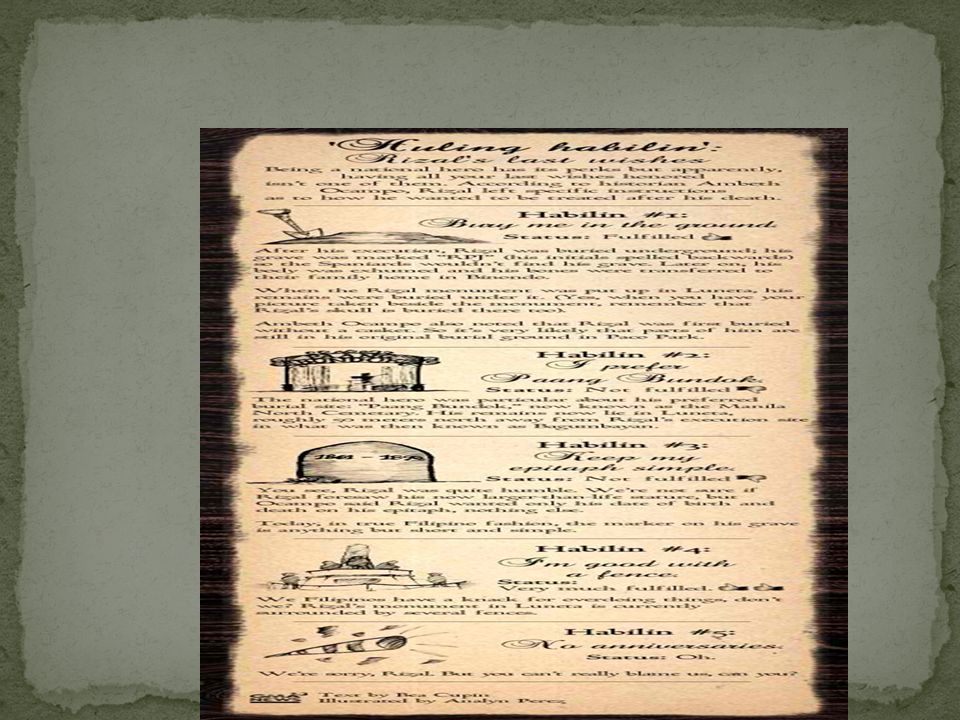 'Huling habilin':
Rizal's last wishes
Being a national hero has its perks but apparently,
having all your last wishes honored
isn't one of them. According to historian Ambeth
Ocampo, Rizal left specific instructions
as to how he wanted to be treated after his death.
Habilin #1:
Bury me in the ground.
Status: Fulfilled
After his execution, Rizal was buried underground; his
grave was marked "RPJ" (his initials spelled backwards)
so the Spaniards wouldn't find his body. Later on, his
body was exhumed and his bones were transferred to
their family home in Binondo.
When the Rizal monument was put up in Luneta, his
remains were buried under it. (Yes, when you have your
picture taken beside the monument, remember that
Rizal's skull is buried there too).
Ambeth Ocampo also noted that Rizal was first buried
without a casket. So it's very likely that parts of him are
still in his original burial ground in Paco Park.
Habilin #2:
I prefer
Paang Bundok.
Status: Not fulfilled
The national hero was particular about his preferred
burial site: "Paang Bundok," now known as the Manila
North Cemetary. His remains now lie in Luneta,
roughly meters north away from Rizal's execution site
in what was then known as Bagumbayan.
Habilin #3:
Keep my
epitaph simple.
Status: Not fulfilled
1861 -
You see, Rizal was quite humble. We're not sure if
Rizal foresaw his now larger-than-life stature, but
Ocampo said Rizal wanted only his date of birth and
death on his epitaph, nothing else.
Today, in true Filipino fashion, the marker on his grave
is anything but short and simple.
Habilin #4:
I'm good with
a fence.
Status:
Very much fulfilled.
We Filipinos have a knack for overdoing things, don't
we? Rizal's monument in Luneta is currently
surrounded by several fences.
Habilin #5:
No anniversaries.
Status: Oh.
We're sorry, Rizal. But you can't really blame us, can you?
GMA NEWS
Text by Bea Cupin
Illustrated by Analyn Perez